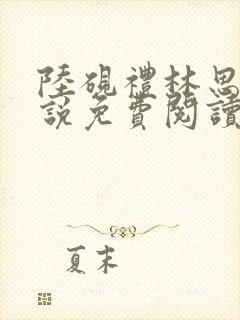 陸硯禮林思
說免費閱讀
夏末